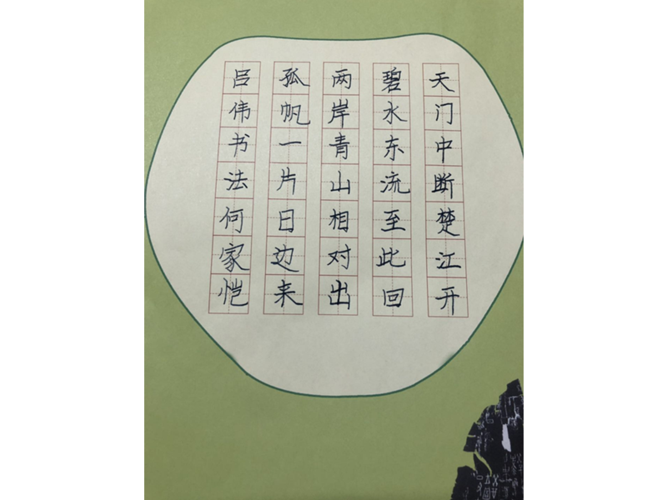 天门中断楚江开
碧水东流至此回
两岸青山相对出
孤帆一片日边来
吕伟书法何家恺